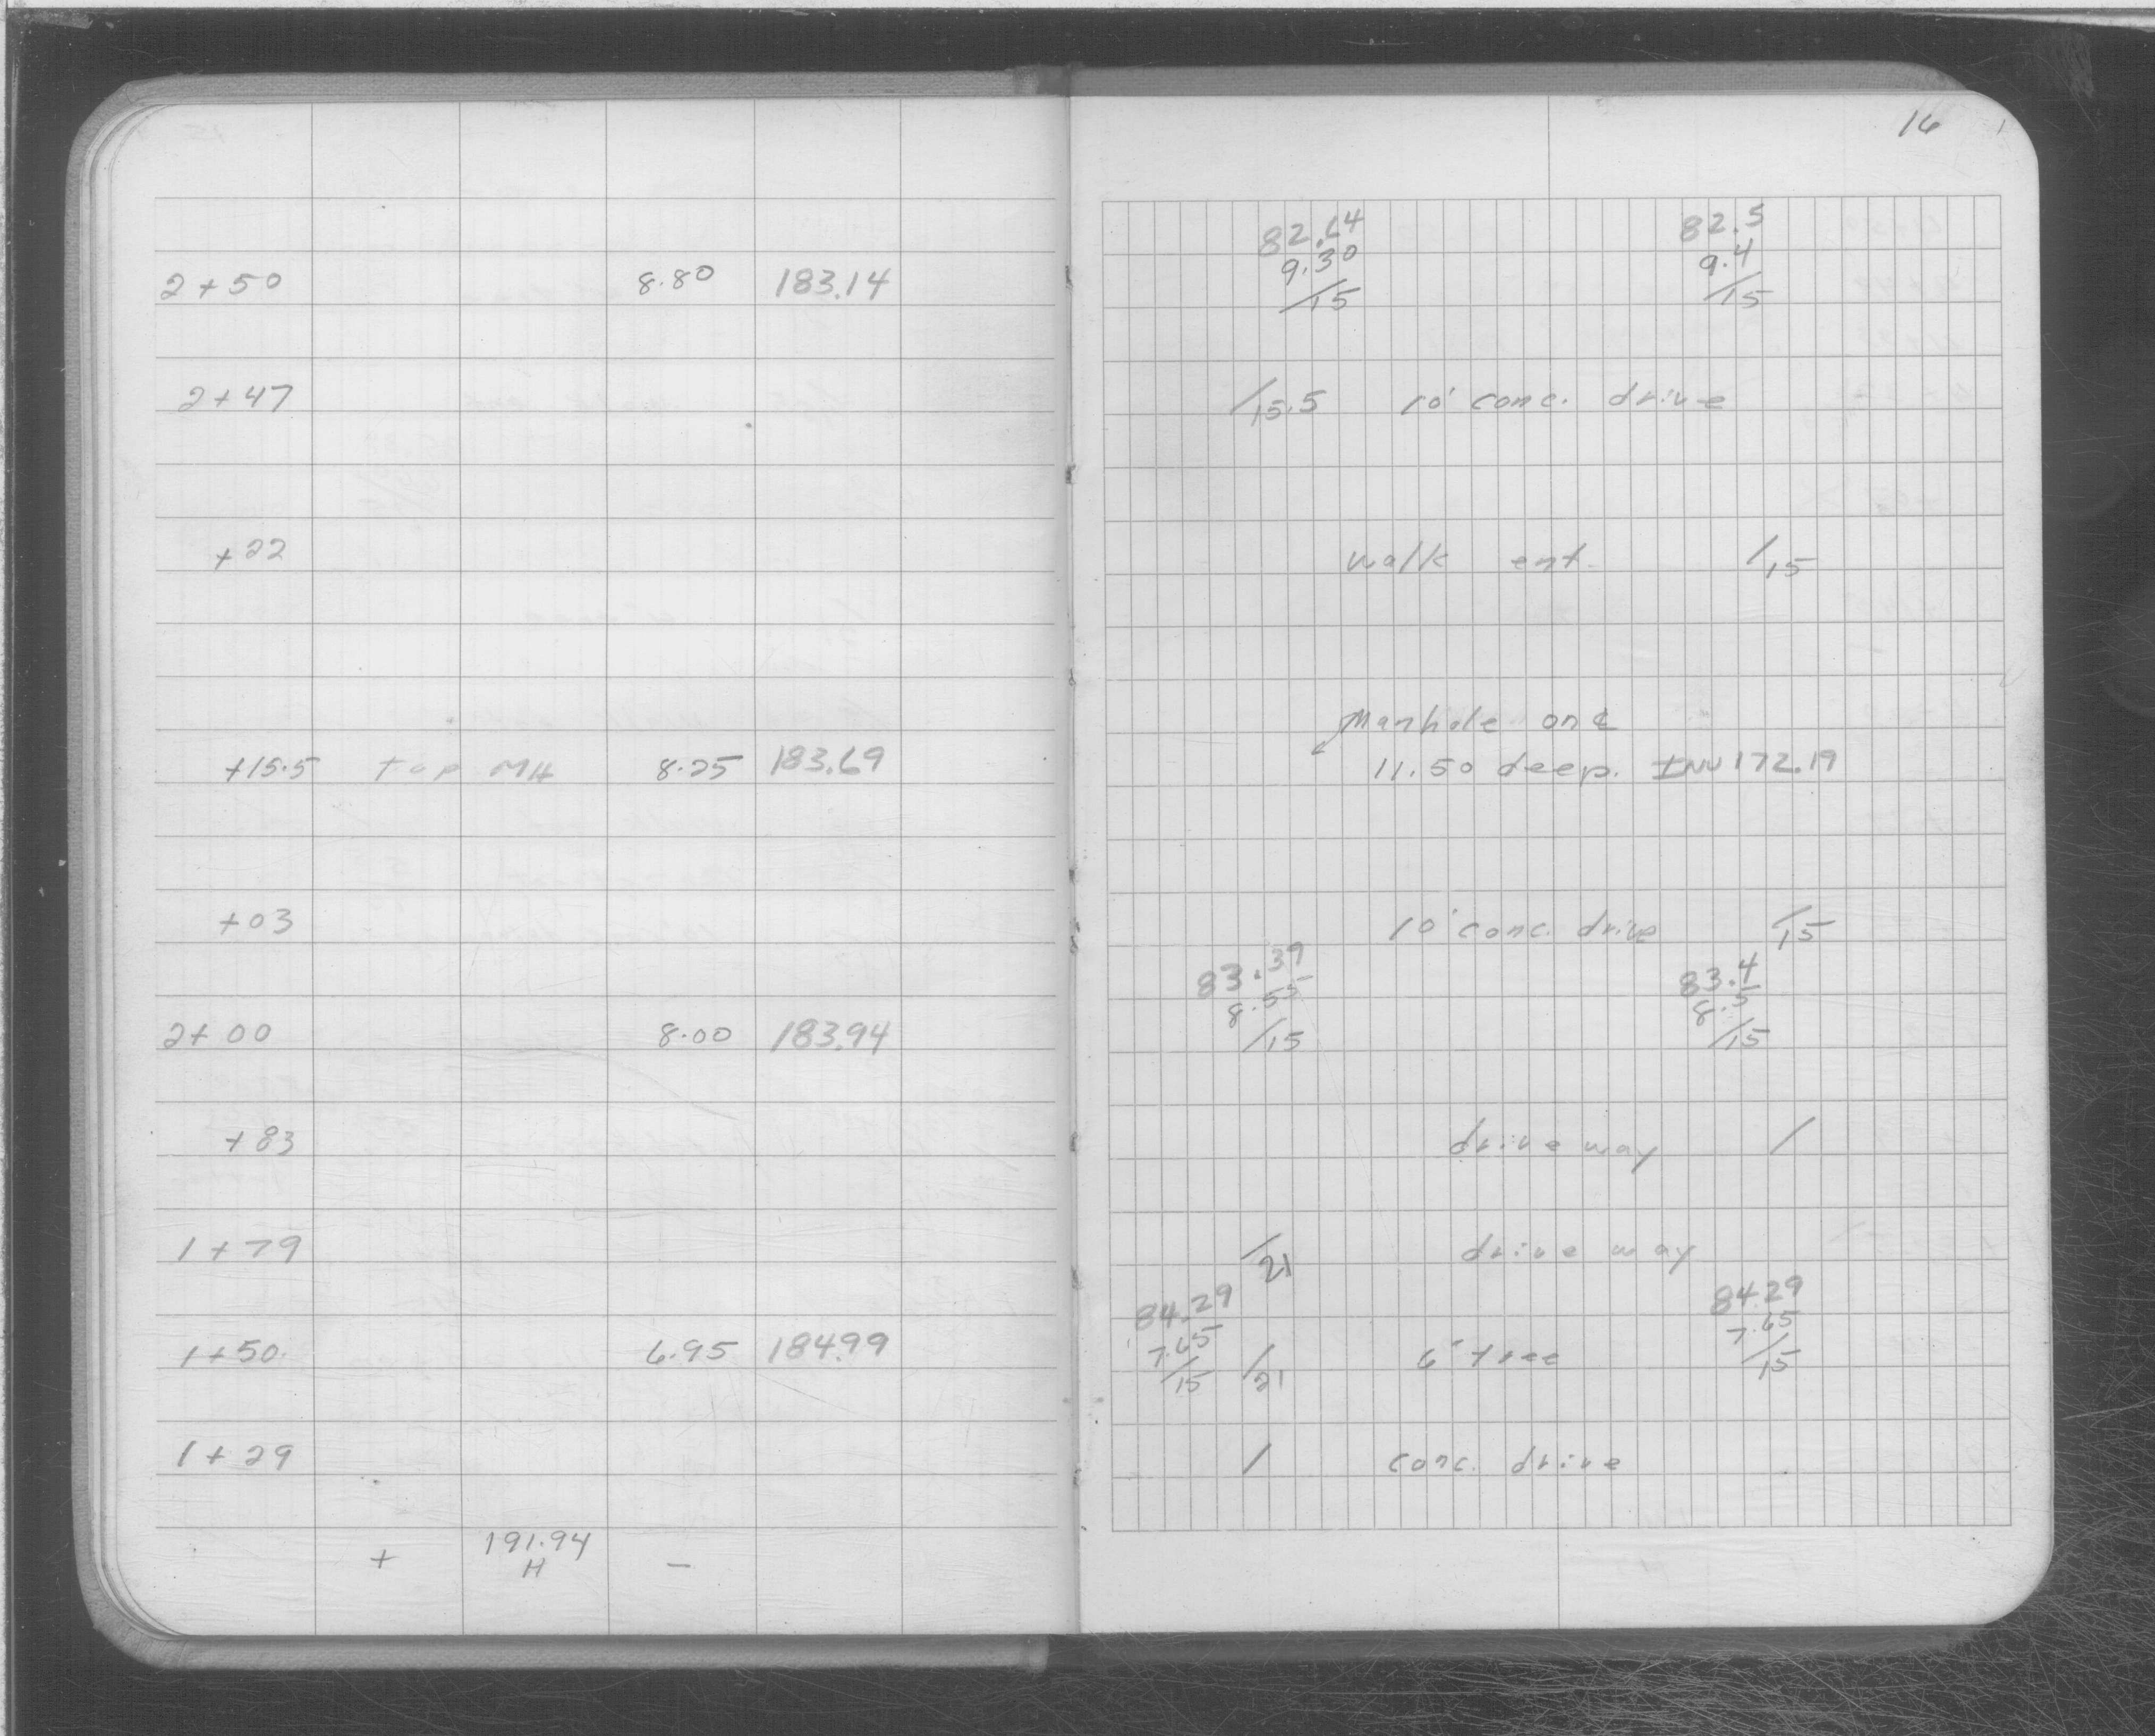 16
82.64 82.5
9.30 9.4
2+50 8.80 183.14 /15 /15
2+47 /15.5 10' conc. drive
+22 walk ent. /15
Manhole on ℄
+15.5 top MH 8.25 183.69 11.50 deep. INV 172.19
+03 10' conc. drive /15
83.39 83.4
8.55 8.5
2+00 8.00 183.94 /15 /15
+83 drive way /
1+79 /21 drive way
84.29 84.29
7.65 7.65
1+50 6.95 184.99 /15 /21 6" tree /15
1+29 / conc. drive
+ 191.94 −
H